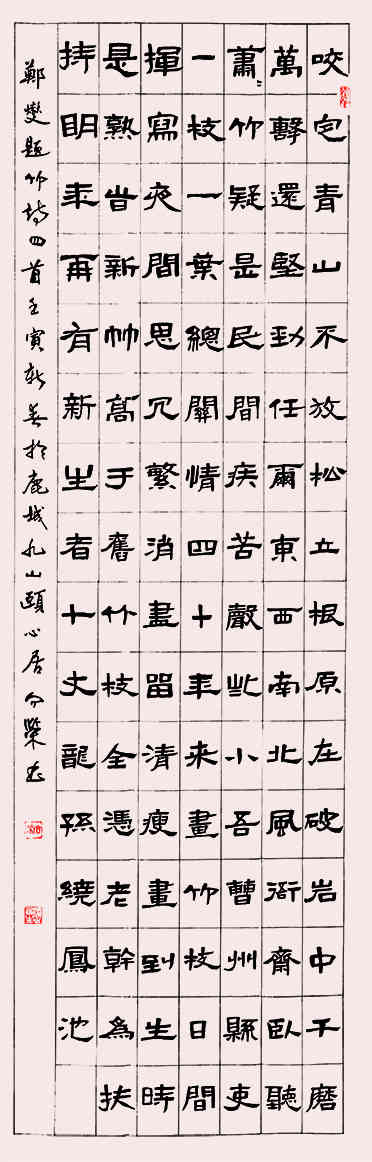 咬定青山不放松立根原在破岩中千磨
萬擊還堅勁任爾東西南北風衙齋臥聽
蕭〻竹疑是民間疾苦聲些小吾曹州縣吏
一枝一葉總關情四十年来畫竹枝日間
揮寫夜間思冗繁消盡留清瘦畫到生時
是熟昔新竹高于舊竹枝全憑老幹為扶
持明年再有新生者十丈龍孫繞鳳池
鄭燮題竹詩四首壬寅新春於鹿城九山頤心居榮書